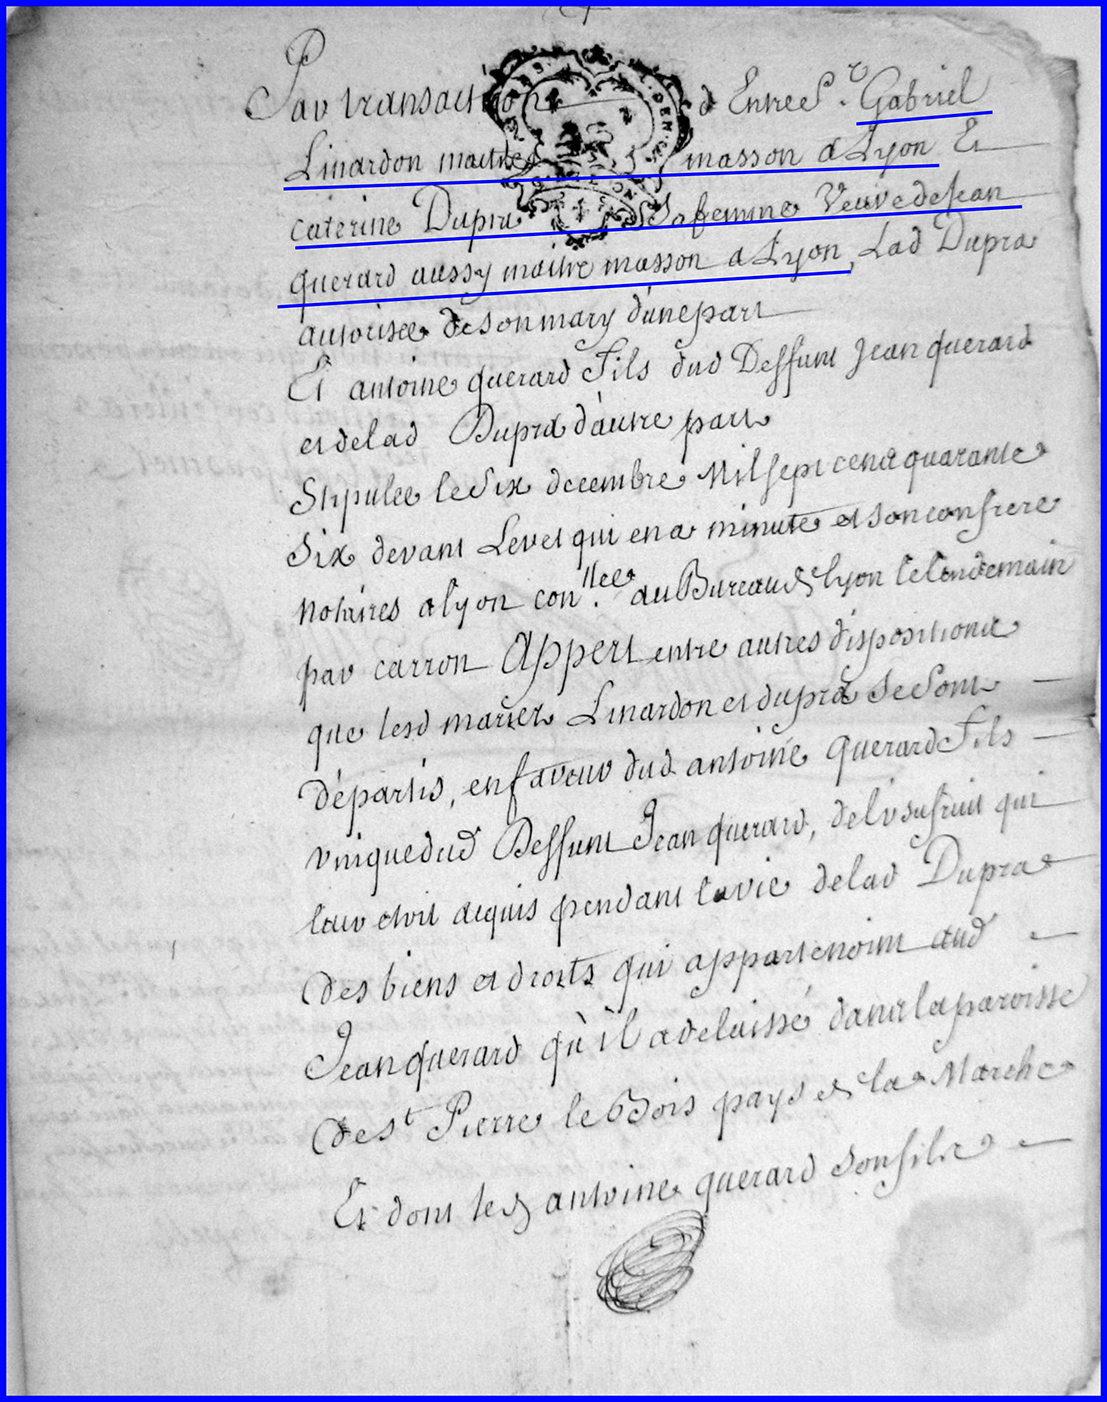 Par transaction d Entre Sr. Gabriel
Linardon maitre masson a Lyon Et
caterine Dupra Sa femme Veuve de Jean
querard aussy maitre masson a Lyon, Lad Dupra
autorisée de son mary d'une part
Et antoine querard Fils dud Deffunt Jean querard
et de lad Dupra d'autre part
Stipulée le Six decembre Mil sept cent quarante
Six devant Levet qui en a minute et son confrere
Notaires a lyon con.llée au Bureau de lyon le lendemain
par carron Appert entre autres dispositions
que lesd mariez Linardon et dupra se sont
départis, en faveur dud antoine querard Fils
unique dud Deffunt Jean querard, de l'usufruit qui
leur etoit acquis pendant la vie de lad Dupra
Des biens et droits qui appartenoint aud
Jean querard qu'il a delaissé dans la paroisse
De st Pierre le Bois pays de la Marche
Et dont led antoine querard son fils